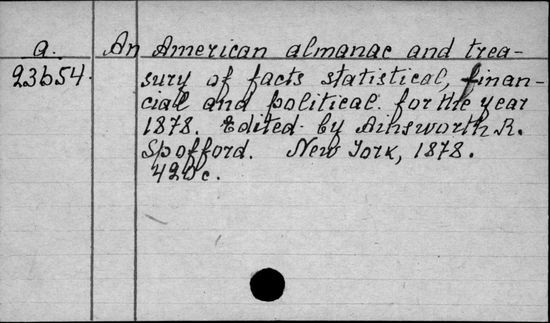 a. An American almanac and trea-
23654. sury of facts statistical, finan-
ciall and political. for the year
1878. Edited by Ainsworth R.
Spofford. New York, 1878.